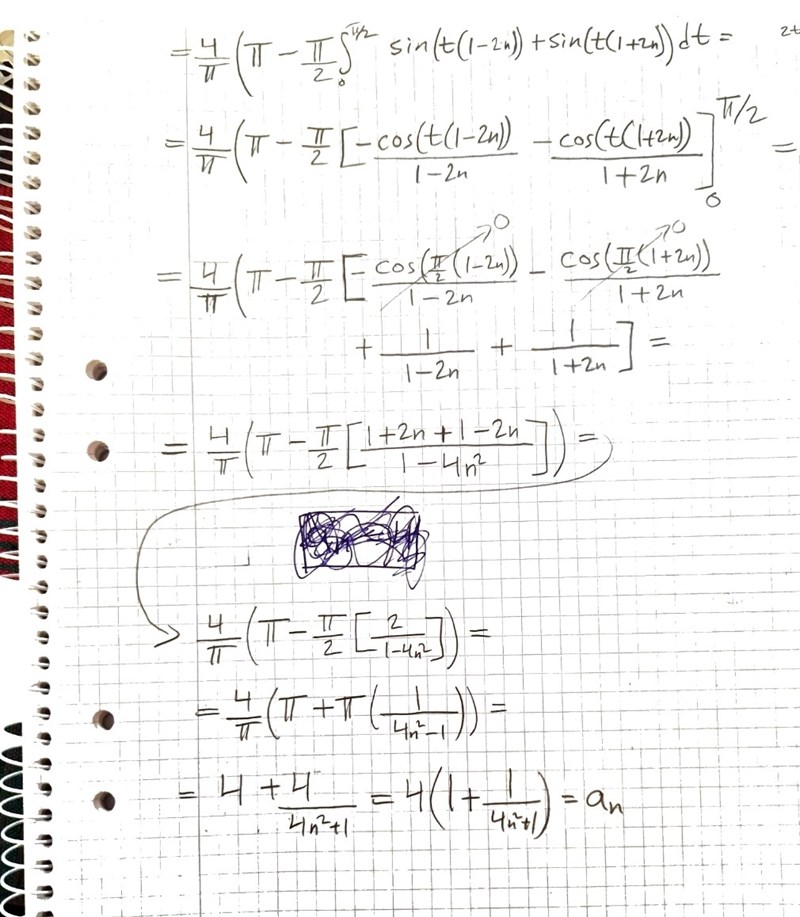 = 4/π (π − π/2 ∫₀^π/2 sin(t(1−2n)) + sin(t(1+2n)) dt =
2t
= 4/π (π − π/2 [−cos(t(1−2n))/(1−2n) − cos(t(1+2n))/(1+2n)]₀^π/2 =
= 4/π (π − π/2 [− cos(π/2 (1−2n))/(1−2n) → 0 − cos(π/2 (1+2n))/(1+2n) → 0
+ 1/(1−2n) + 1/(1+2n) ] =
= 4/π (π − π/2 [(1+2n+1−2n)/(1−4n²)]) =
4/π (π − π/2 [2/(1−4n²)]) =
= 4/π (π + π (1/(4n²−1))) =
= 4 + 4/(4n²+1) = 4(1 + 1/(4n²+1)) = aₙ